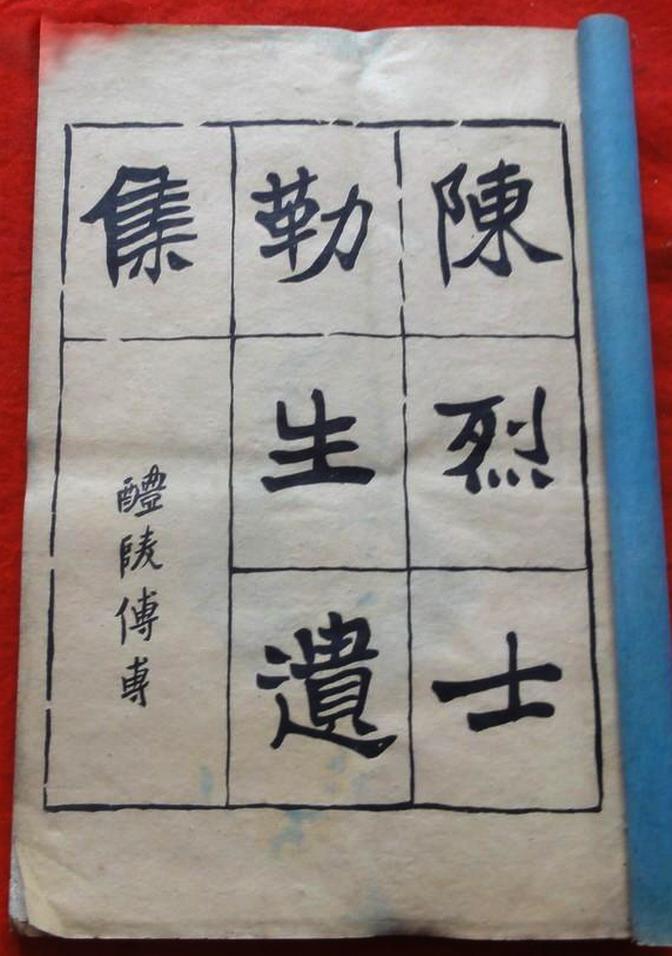 陳烈士
勒生遺
集
醴陵傅尃